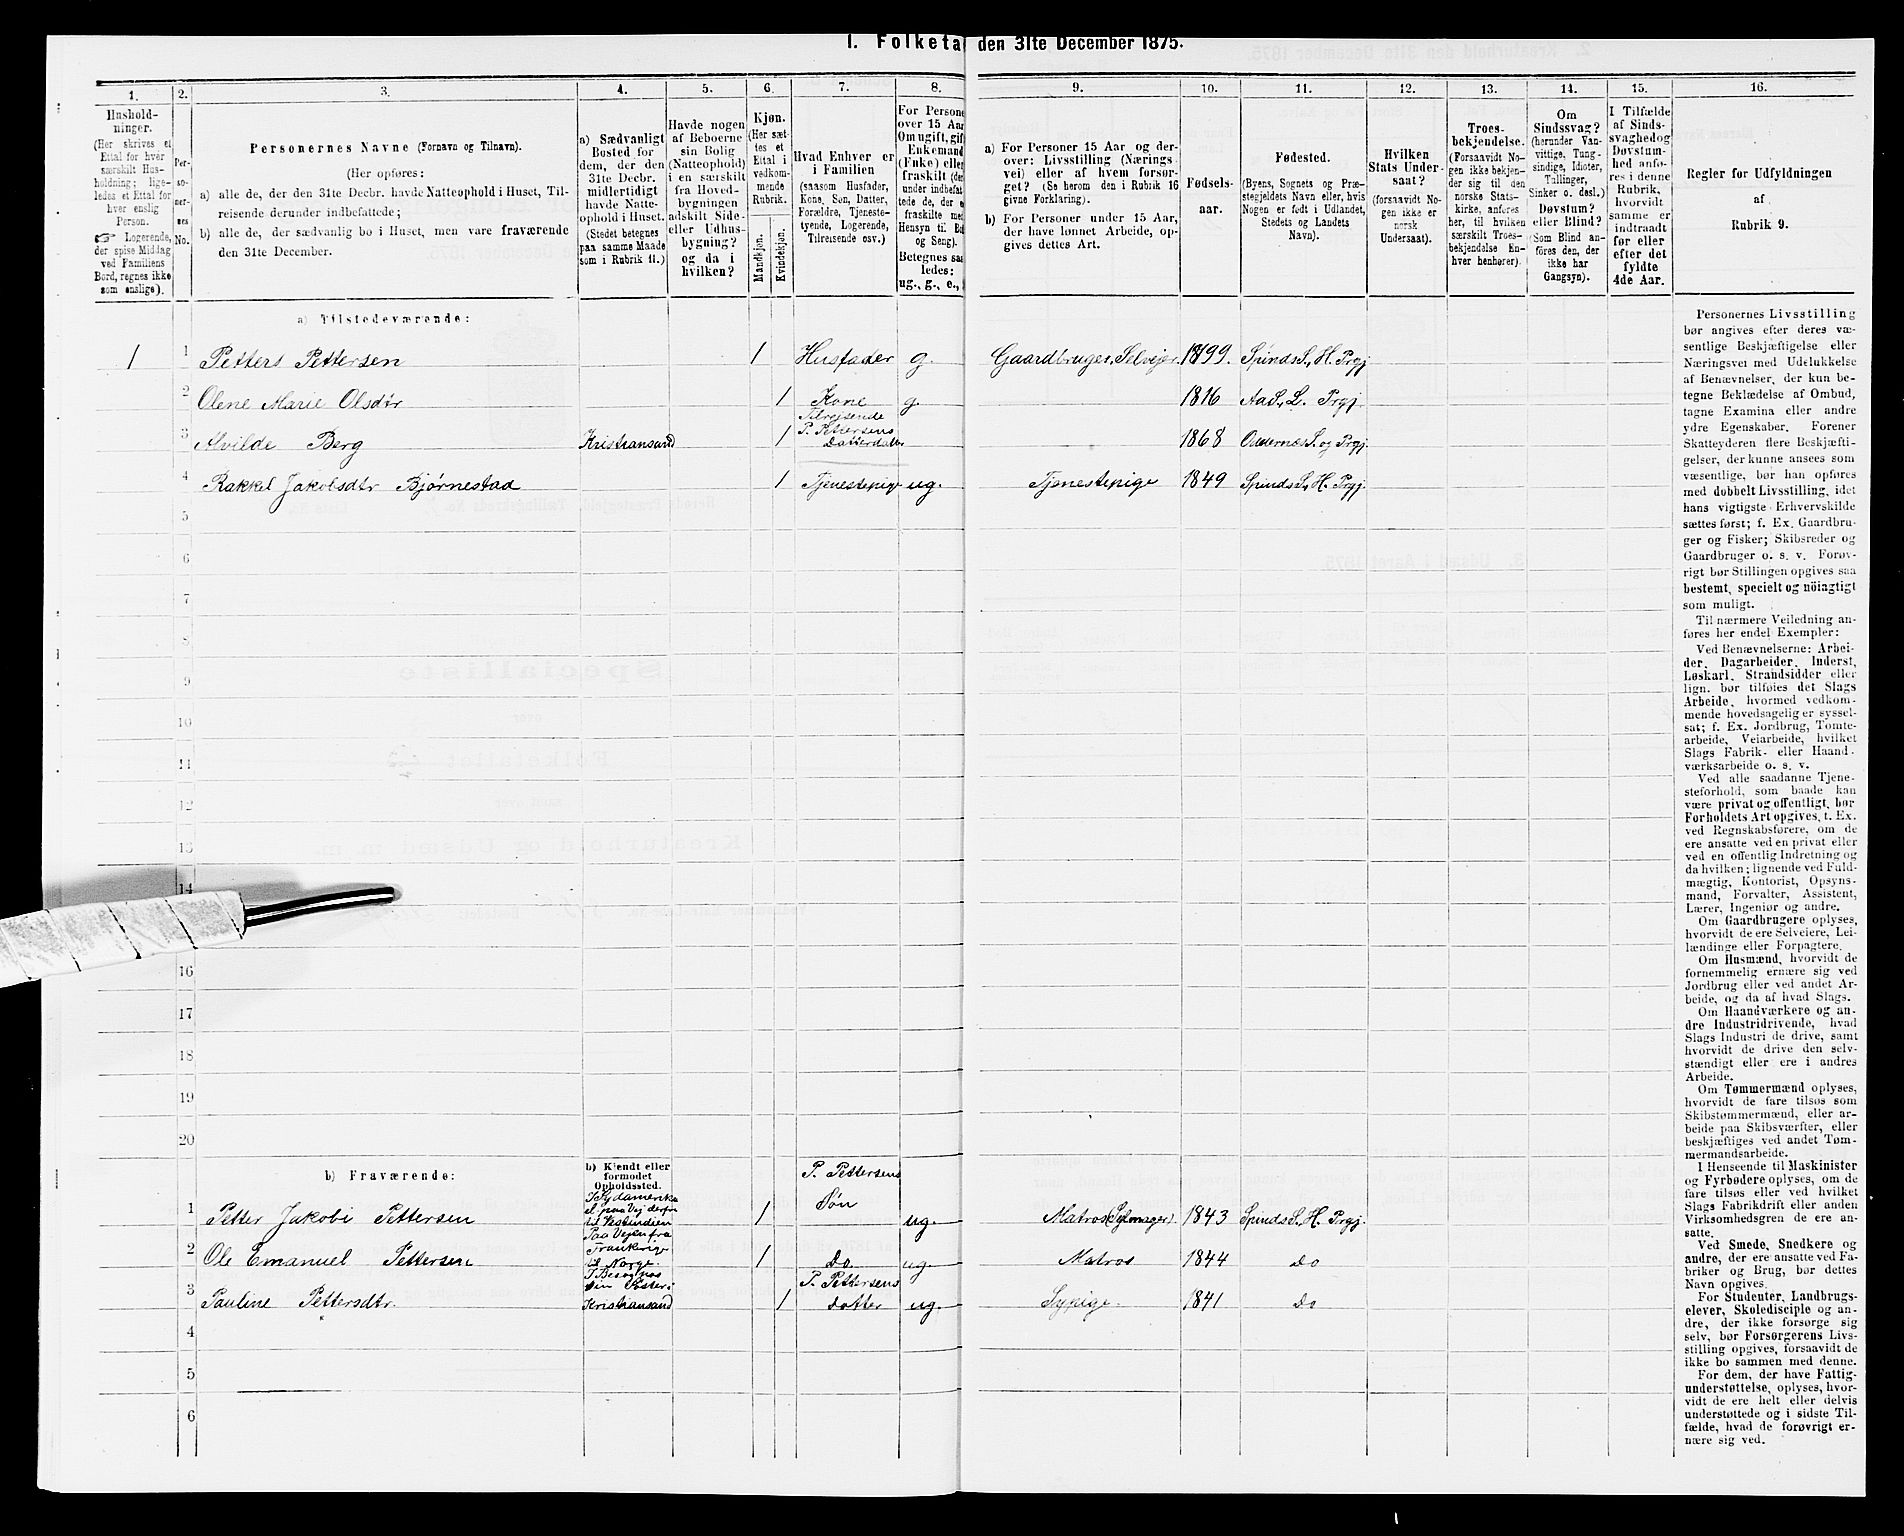 1. Folketa den 31te December 1875.
1. 2. 3. 4. 5. 6. 7. 8. 9. 10. 11. 12. 13. 14. 15. 16.
Hushold-
ninger.
(Her skrives et
Ettal for hver
særskilt Hus-
holdning; lige-
ledes et Ettal for
hver enslig
Person.
☞ Logerende,
der spise Middag
ved Familiens
Bord, regnes ikke
som enslige).
Per-
so-
ner-
nes
No.
Personernes Navne (Fornavn og Tilnavn).
(Her opføres:
a) alle de, der den 31te Decbr. havde Natteophold i Huset, Til-
reisende derunder indbefattede;
b) alle de, der sædvanlig bo i Huset, men vare fraværende
den 31te December.
a) Sædvanligt
Bosted for
dem, der den
31te Decbr.
midlertidigt
havde Natte-
ophold i Huset.
(Stedet betegnes
paa samme Maade
som i Rubrik 11.)
Havde nogen
af Beboerne
sin Bolig
(Natteophold)
i en særskilt
fra Hoved-
bygningen
adskilt Side-
eller Udhus-
bygning?
og da i
hvilken?
Kjøn.
(Her sæt-
tes et
Ettal i
vedkom-
mende
Rubrik.
Mandkjøn.
Kvindekjøn.
Hvad Enhver er
i Familien
(saasom Husfader,
Kone, Søn, Datter,
Forældre, Tjeneste-
tyende, Logerende,
Tilreisende osv.)
For Persone
over 15 Aar
Om ugift, gift
Enkemand
(Enke) elle
fraskilt (de
under indbefat
tede de, der e
fraskilte me
Hensyn til B
og Seng).
Betegnes saa
ledes:
ug., g., e.,
a) For Personer 15 Aar og der-
over: Livsstilling (Nærings
vei) eller af hvem forsør-
get? (Se herom den i Rubrik 16
givne Forklaring).
b) For Personer under 15 Aar,
der have lønnet Arbeide, op-
gives dettes Art.
Fødsels-
aar.
Fødested.
(Byens, Sognets og Præ-
stegjeldets Navn eller, hvis
Nogen er født i Udlandet,
Stedets og Landets
Navn).
Hvilken
Stats Under-
saat?
(forsaavidt No-
gen ikke er
norsk
Undersaat).
Troes-
bekjendelse.
(Forsaavidt No-
gen ikke bekjen-
der sig til den
norske Stats-
kirke, anføres
her, til hvilken
særskilt Troes-
bekjendelse En-
hver henhører).
Om
Sindssvag?
(herunder Van-
vittige, Tung-
sindige, Idioter,
Tullinger,
Sinker o. desl.)
Døvstum?
eller Blind?
(Som Blind an-
føres den, der
ikke har
Gangsyn).
I Tilfælde
af Sinds-
svaghed og
Døvstum-
hed anfø-
res i denne
Rubrik,
hvorvidt
samme er
indtraadt
før eller
efter det
fyldte
4de Aar.
Regler for Udfyldningen
af
Rubrik 9.
a) Tilstedeværende:
1 1 Petters Pettersen 1 Husfader g. Gaardbruger, Selvejer 1799. Spinds S., H. Prgj.
2 Olene Marie Olsdtr 1 Kone g. 1816 Aa S., L. Prgj.
3 Alvilde Berg Kristiansand 1 Tilreisende P. Pettersens Datterdatter 1868 Oddernæs S. og Prgj.
4 Rakkel Jakobsdtr Bjørnestad 1 Tjenestepige ug. Tjenestepige 1849 Spinds S., H. Prgj.
5
6
7
8
9
10
11
12
13
14
16
17
18
19
20
b) Fraværende:
b) Kjendt eller
formodet
Opholdssted.
1 Petter Jakobi Pettersen I Sydamerika el. paa Vej derfra til Vestindien 1 P. Pettersens Søn ug. Matros 1843 Spinds S., H. Prgj.
2 Ole Emanuel Pettersen Paa Vejen fra Frankrige til Norge. 1 Do. ug. Matros 1844 Do
3 Pauline Pettersdtr. I Besøg hos sin Søster i Kristiansand 1 P. Pettersens Datter ug. Sypige. 1841 Do
4
5
6
Personernes Livsstilling
bør angives efter deres væ-
sentlige Beskjæftigelse eller
Næringsvei med Udelukkelse
af Benævnelser, der kun be-
tegne Beklædelse af Ombud,
tagne Examina eller andre
ydre Egenskaber. Forener
Skatteyderen flere Beskjæfti-
gelser, der kunne ansees som
væsentlige, bør han opføres
med dobbelt Livsstilling, idet
hans vigtigste Erhvervskilde
sættes først; f. Ex. Gaardbru-
ger og Fisker; Skibsreder og
Gaardbruger o. s. v. Forøv-
rigt bør Stillingen opgives saa
bestemt, specielt og nöiagtigt
som muligt.
Til nærmere Veiledning an-
føres her endel Exempler:
Ved Benævnelserne: Arbei-
der, Dagarbeider, Inderst,
Løskarl, Strandsidder eller
lign. bør tilføies det Slags
Arbeide, hvormed vedkom-
mende hovedsagelig er syssel-
sat; f. Ex. Jordbrug, Tomte-
arbeide, Veiarbeide, hvilket
Slags Fabrik- eller Haand-
værksarbeide o. s. v.
Ved alle saadanne Tjene-
steforhold, som baade kan
være privat og offentligt, bør
Forholdets Art opgives, t. Ex.
ved Regnskabsførere, om de
ere ansatte ved en privat eller
ved en offentlig Indretning og
da hvilken; lignende ved Fuld-
mægtig, Kontorist, Opsyns-
mand, Forvalter, Assistent,
Lærer, Ingeniør og andre.
Om Gaardbrugere oplyses,
hvorvidt de ere Selveiere, Lei-
lændinge eller Forpagtere.
Om Husmænd, hvorvidt de
fornemmelig ernære sig ved
Jordbrug eller ved andet Ar-
beide, og da af hvad Slags.
Om Haandværkere og an-
dre Industridrivende, hvad
Slags Industri de drive, samt
hvorvidt de drive den selv-
stændigt eller ere i andres
Arbeide.
Om Tømmermænd oplyses,
hvorvidt de fare tilsøs som
Skibstømmermænd, eller ar-
beide paa Skibsværfter, eller
beskjæftiges ved andet Tøm-
mermandsarbeide.
I Henseende til Maskinister
og Fyrbødere oplyses, om de
fare tilsøs eller ved hvilket
Slags Fabrikdrift eller anden
Virksomhedsgren de ere an-
satte.
Ved Smede, Snedkere og
andre, der ere ansatte ved Fa-
briker og Brug, bør dettes
Navn opgives.
For Studenter, Landbrugs-
elever, Skoledisciple og an-
dre, der ikke forsørge sig
selv, bør Forsørgerens Livs-
stilling opgives, forsaavidt de
ikke bo sammen med denne.
For dem, der have Fattig-
understøttelse, oplyses, hvor-
vidt de ere helt eller delvis
understøttede og i sidste Til-
fælde, hvad de forøvrigt er-
nære sig ved.